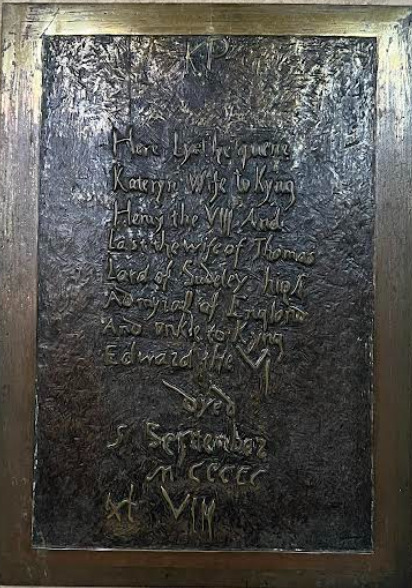 KP
Here Lyethe quene
Kateryn Wife to Kyng
Henry the VIII And
Last the wife of Thomas
Lord of Sudeley high
Admyrall of England
And onkle to Kyng
Edward the VI
dyed
5 September
MCCCCC
XLVIII